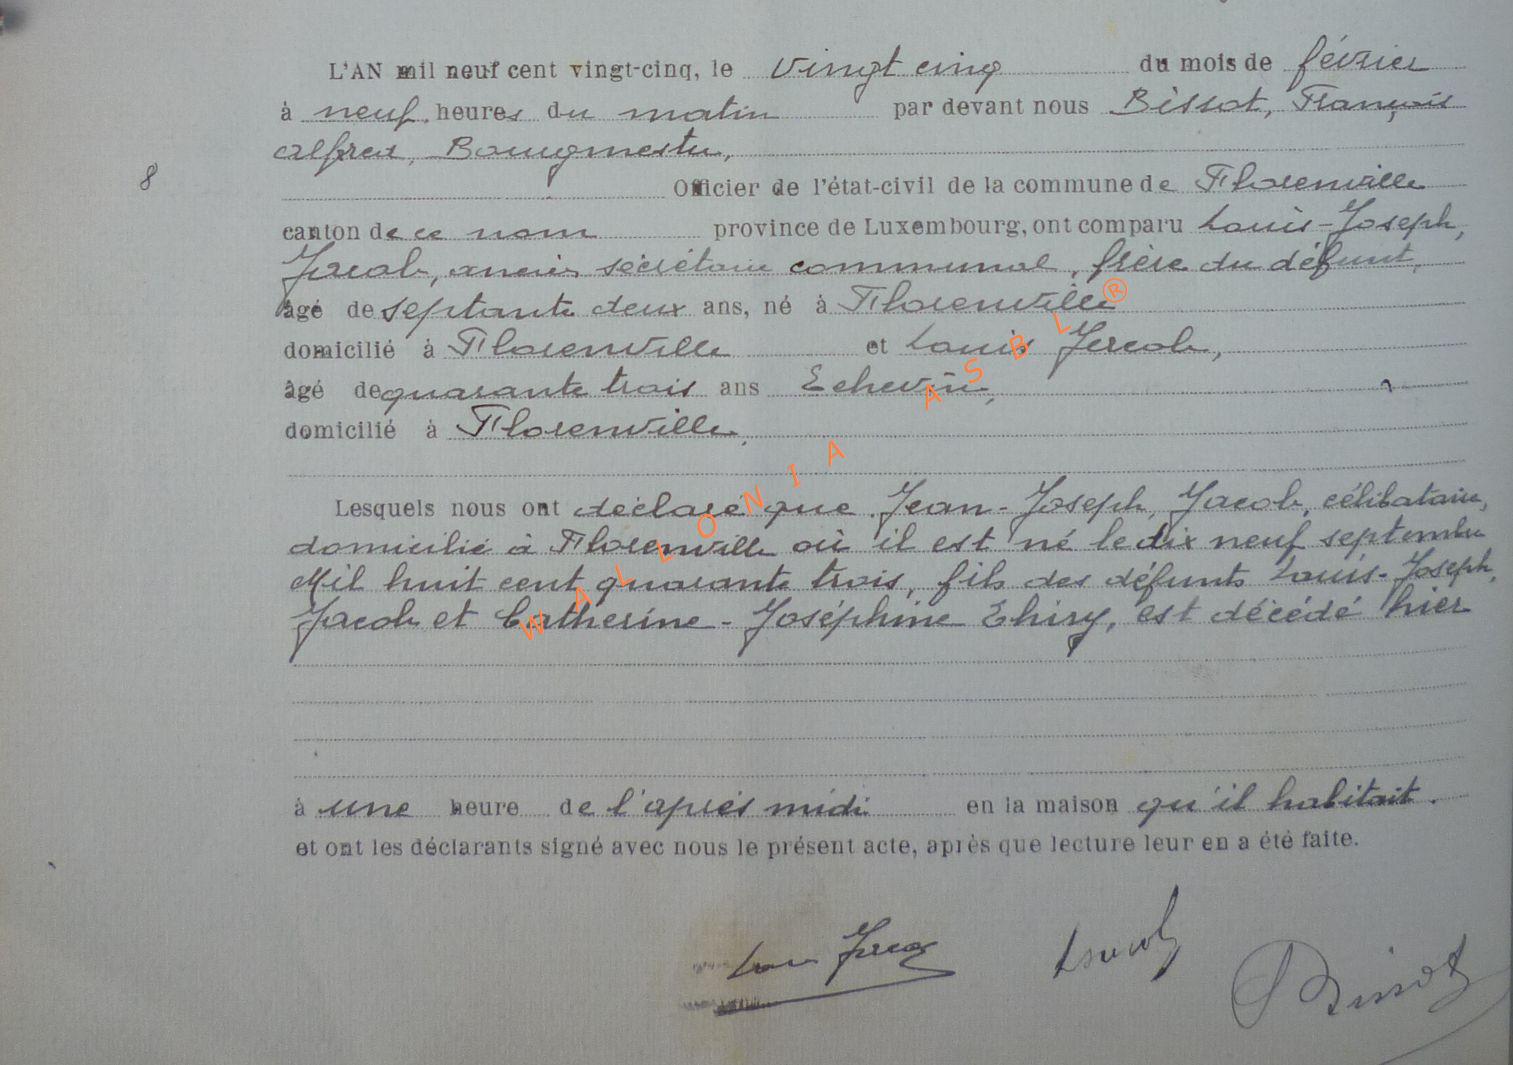 L'AN mil neuf cent vingt-cinq, le vingt cinq du mois de février
à neuf heures du matin par devant nous Bissot, François
Alfred, Bourgmestre,
8
Officier de l'état-civil de la commune de Florenville
canton de ce nom province de Luxembourg, ont comparu Louis-Joseph,
Jacob, ancien secrétaire communal, frère du défunt,
âgé de septante deux ans, né à Florenville
domicilié à Florenville et Louis Jacob,
âgé de quarante trois ans Echevin,
domicilié à Florenville,
Lesquels nous ont déclaré que Jean-Joseph, Jacob, célibataire,
domicilié à Florenville où il est né le dix neuf septembre
Mil huit cent quarante trois, fils des défunts Louis-Joseph,
Jacob et Catherine-Joséphine Thiry, est décédé hier
à une heure de l'après midi en la maison qu'il habitait.
et ont les déclarants signé avec nous le présent acte, après que lecture leur en a été faite.
Louis Jacob Bissot
WALLONIA ASBL®